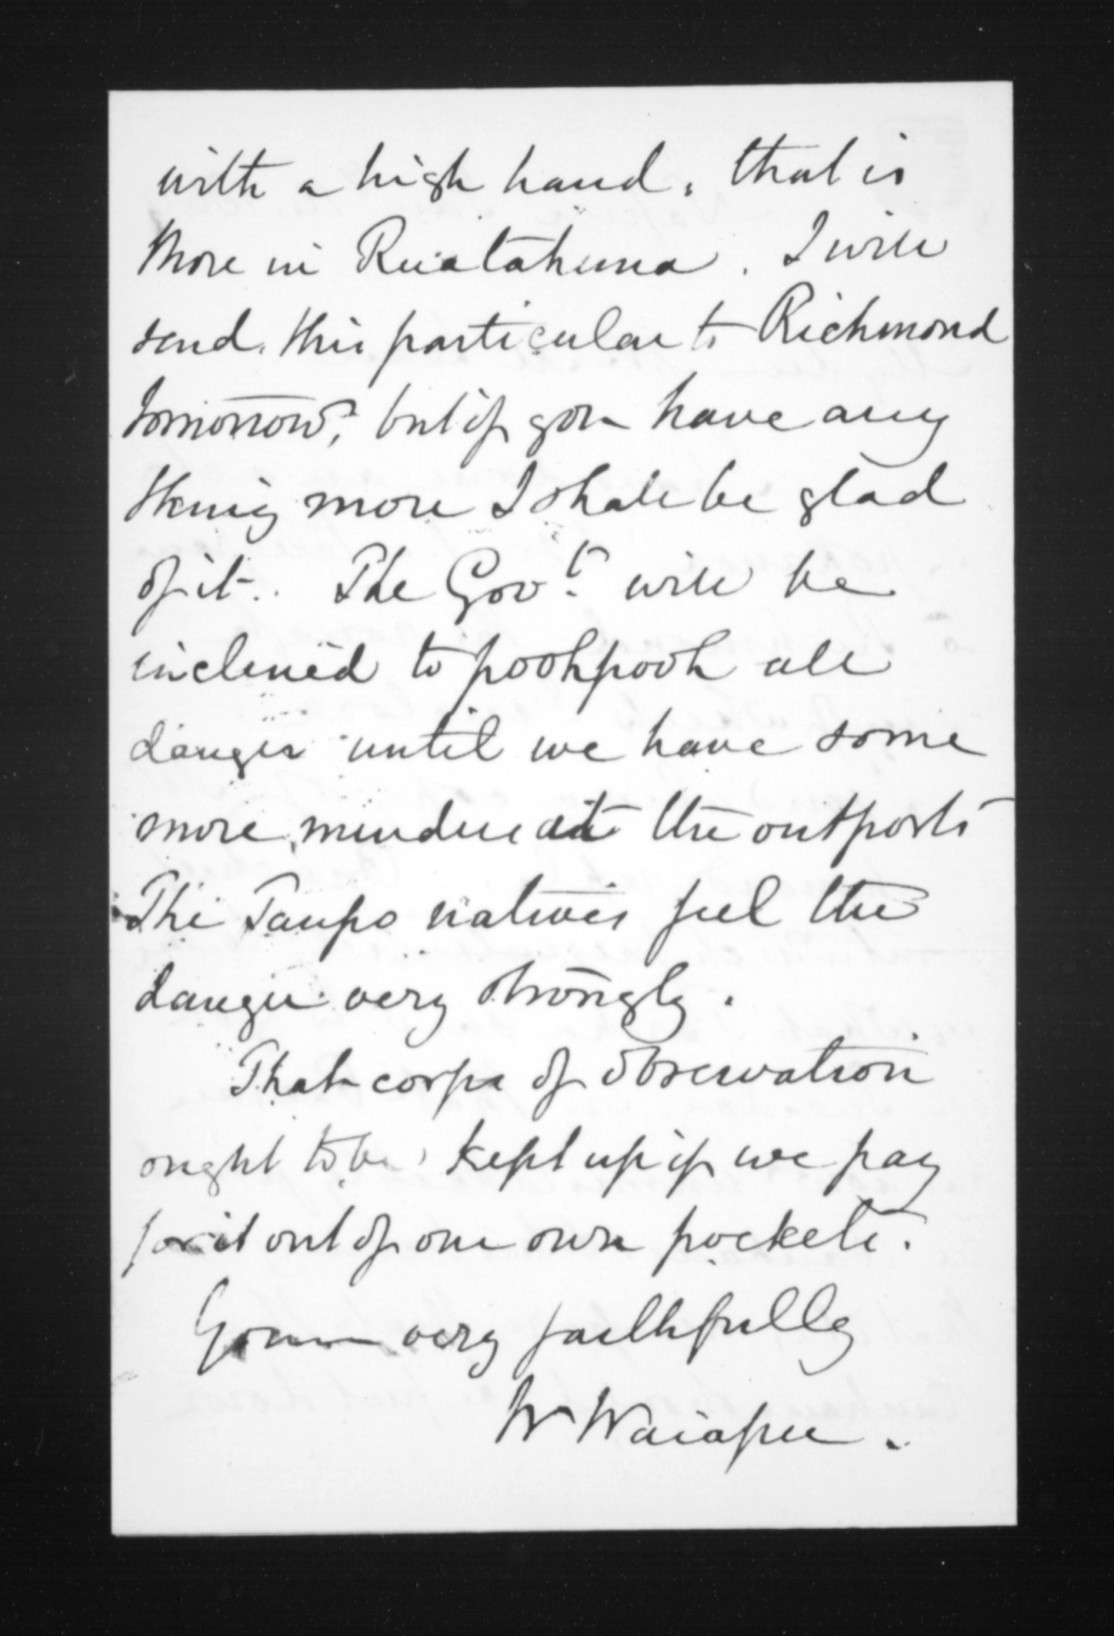 with a high hand, that is
More in Ruatahuna. I will
send this particular to Richmond
tomorrow, but if you have any
thing more I shall be glad
of it. The Govt. will be
inclined to poohpooh all
danger until we have some
more murders at the outposts
The Taupo natives feel the
danger very strongly.
That corps of observation
ought to be kept up if we pay
for it out of our own pockets.
Yours very faithfully
W Waiapu.